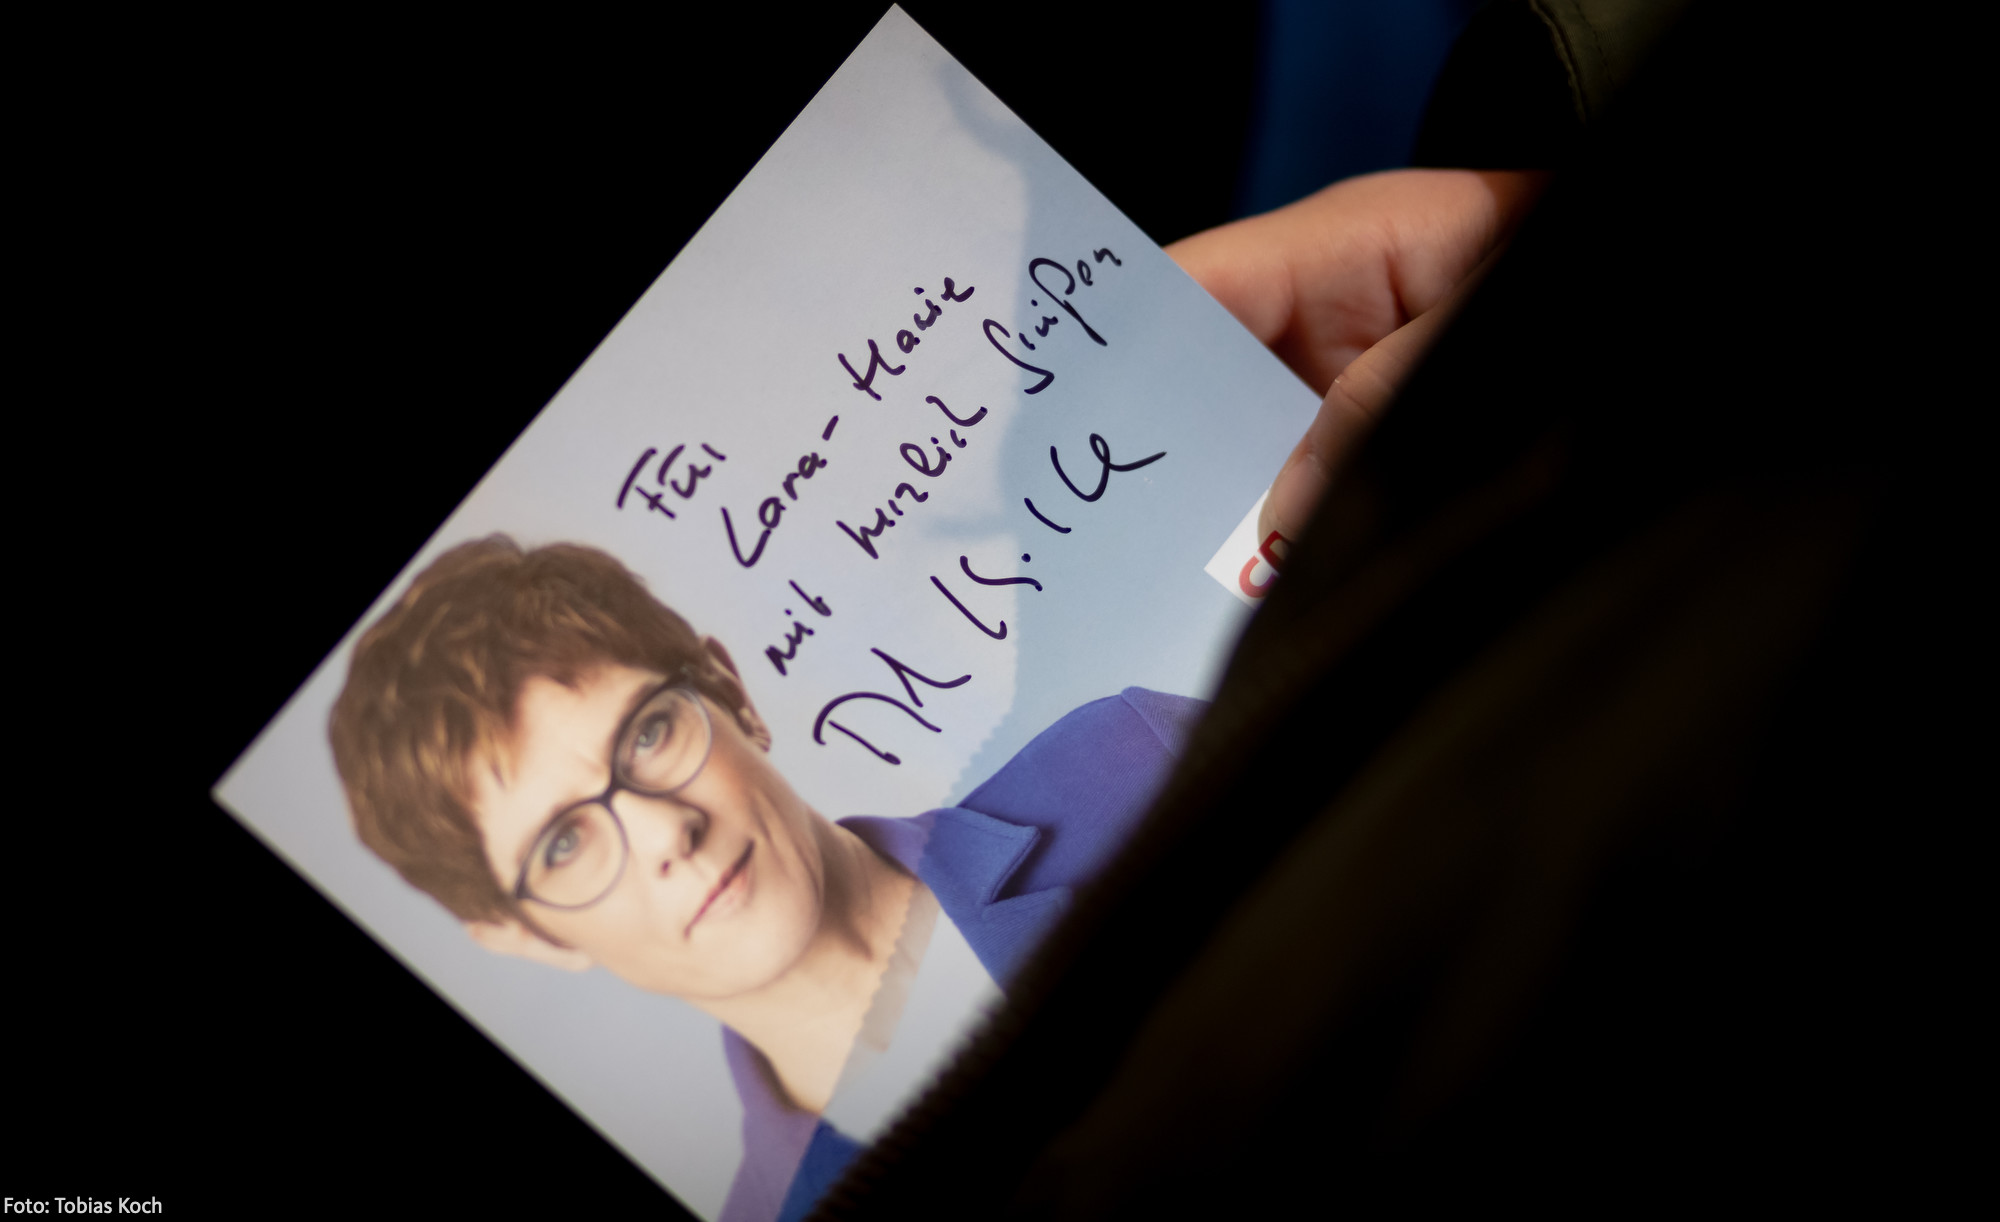 Für
Lara-Marie
mit herzlich Grüßen
A. K. K
CD
Foto: Tobias Koch